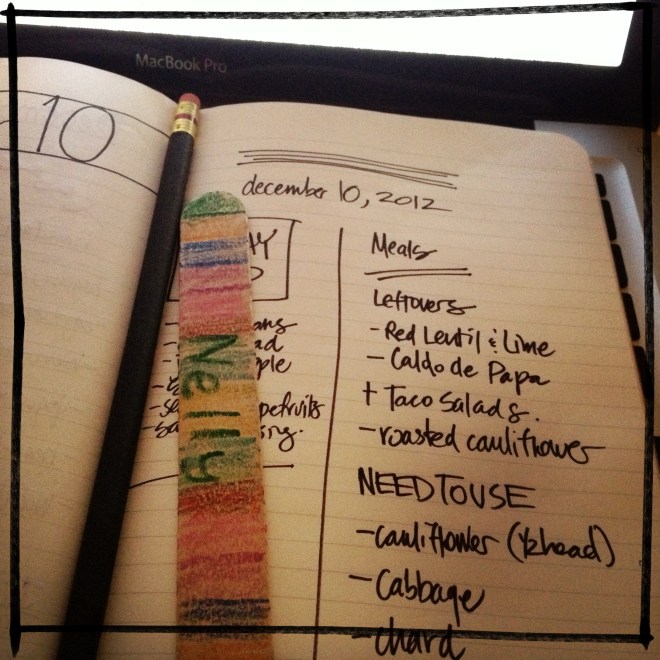 MacBook Pro
10
december 10, 2012
Nelly
Meals
Leftovers
- Red Lentil & Lime
- Caldo de Papa
+ Taco Salads.
- roasted cauliflower
NEED TO USE
- cauliflower (1/2 head)
- Cabbage
- chard